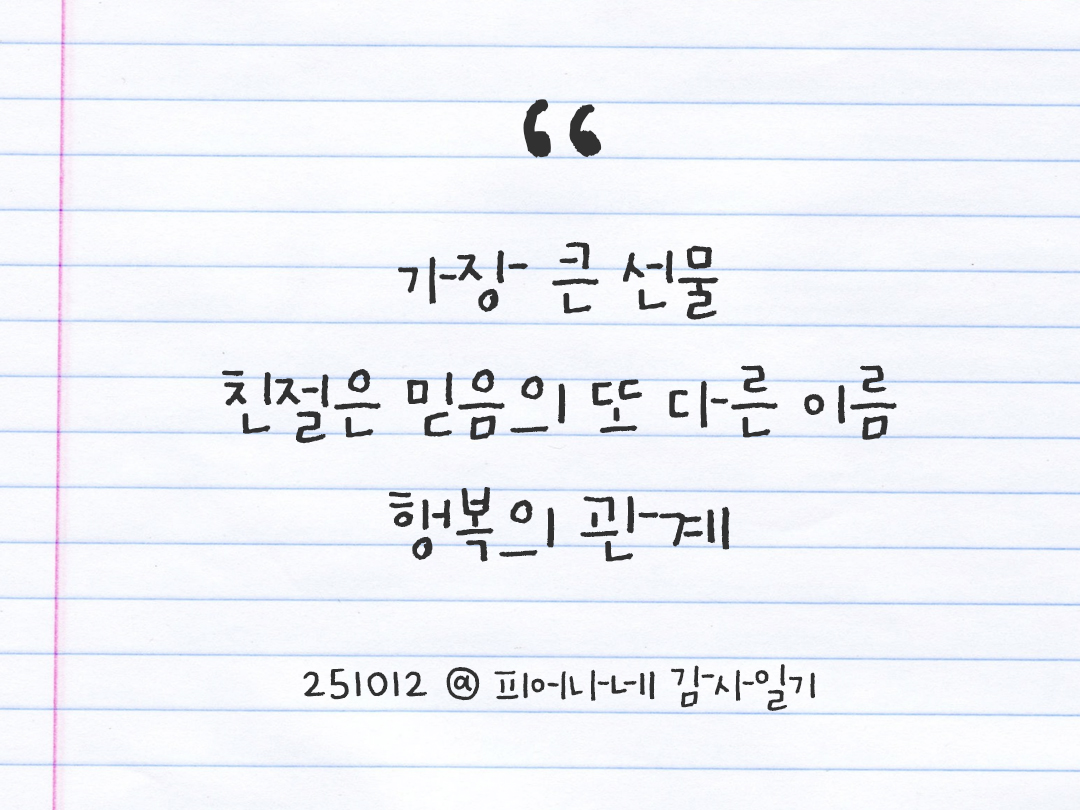 “
가장 큰 선물
친절은 믿음의 또 다른 이름
행복의 관계
251012 @ 피어나네 감사일기